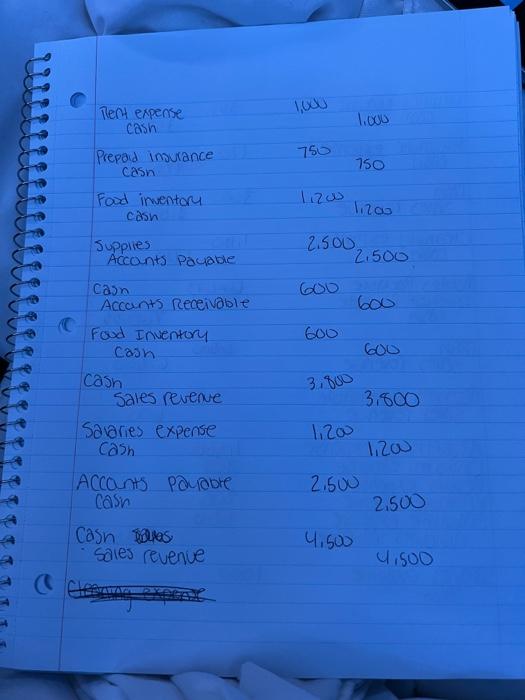 Rent expense 1,000
Cash 1,000
Prepaid insurance 750
Cash 750
Food inventory 1,200
Cash 1,200
Supplies 2,500
Accounts Payable 2,500
Cash 600
Accounts Receivable 600
Food Inventory 600
Cash 600
Cash 3,800
Sales revenue 3,800
Salaries expense 1,200
Cash 1,200
Accounts Payable 2,500
Cash 2,500
Cash 4,500
Sales revenue 4,500